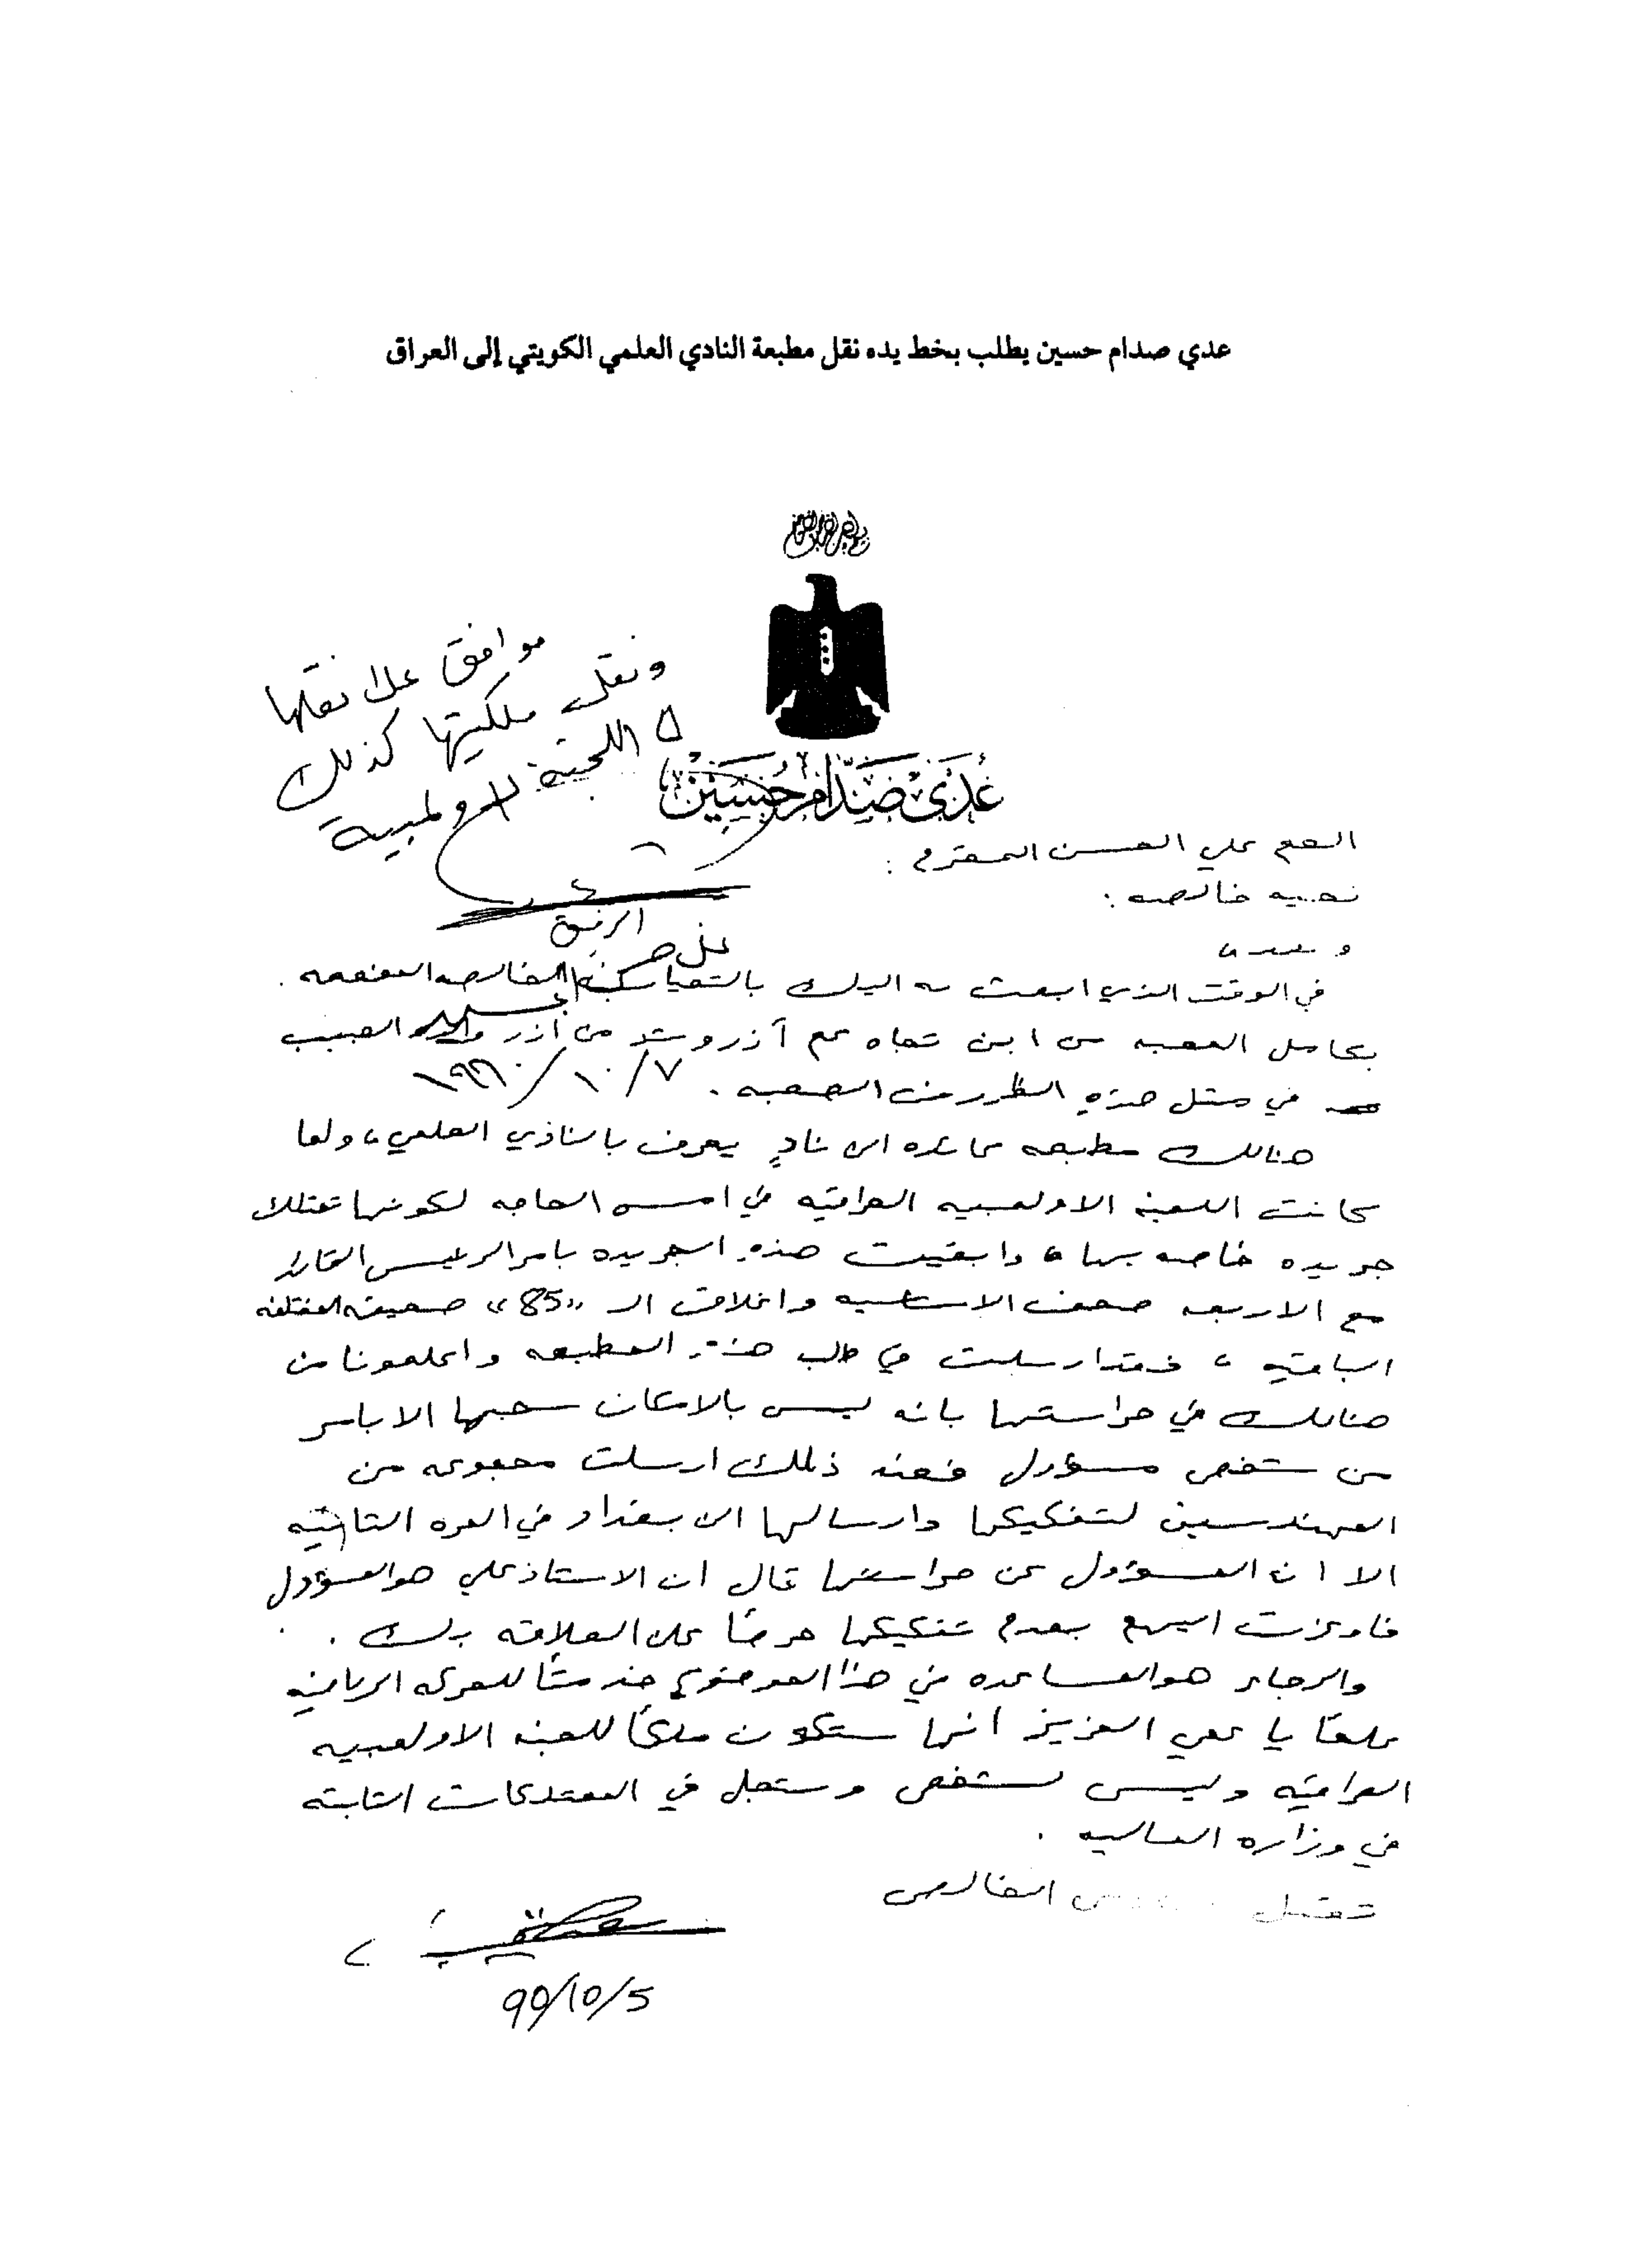 عدي صدام حسين يطلب بخط يده نقل مطبعة النادي العلمي الكويتي إلى العراق
موافق على نقلها
ونقل ملكيتها كذلك
اللجنة الاولمبية
عُدَي صَدّام حُسَين
العم علي الحسن المحترم :
تحيه خالصه :
و بعد ،
في الوقت الذي ابعث به اليك بالتحيات الخالصه المفعمه .
الرفيق
علي حسن المجيد
بكامل المحبه من ابن تجاه عم آزر وشد من أزر والده الحبيب
في مثل هذهِ الظروف الصعبه .
١٩٩٠/١٠/٧
هنالك مطبعه عائده الى نادٍ يعرف بالنادي العلمي ، ولما
كانت اللجنه الاولمبيه العراقيه في امس الحاجه لكونها تمتلك
جريده خاصه بها ، وابقيت هذهِ الجريده بامر الرئيس القائد
مع الاربعه صحف الاساسيه واغلاق الـ «85» صحيفه المختلفه
الباقيه ، فقد ارسلت في طلب هذهِ المطبعه واعلمونا من
هنالك في حراستها بانه ليس بالامكان سحبها الا بامر
من شخص مسؤول فعند ذلك ارسلت مجموعه من
المهندسين لتفكيكها وارسالها الى بغداد في المره الثانيه
الا ان المسؤول عن حراستها قال ان الاستاذ علي هو المسؤول
فاوعزت اليهم بعدم تفكيكها حرصًا على العلاقه بك .
والرجاء هو المساعده في هذا الموضوع خدمتًا للحركه الرياضيه
علمًا يا عمي العزيز انها ستكون ملكًا للجنه الاولمبيه
العراقيه وليس لشخص وستسجل في الممتلكات الثابته
في وزاره الماليه .
تقبل الخالص
90/10/5